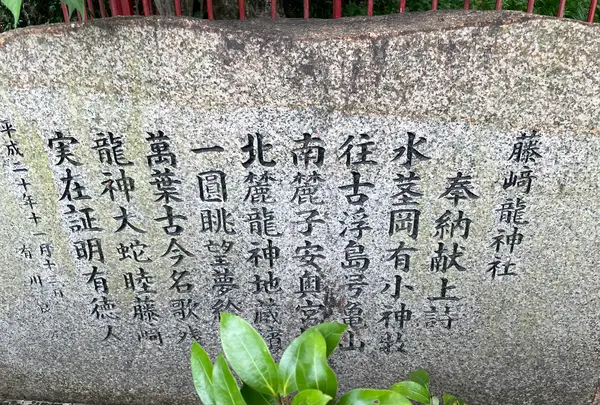 藤﨑龍神社
奉納献上詩
水茎岡有小神
往古浮島号亀山
南麓子安奥宮
北麓龍神地蔵
一圓眺望夢絵
萬葉古今名歌残
龍神大蛇睦藤﨑
実在証明有徳人
平成二十年十一月十三日
有川